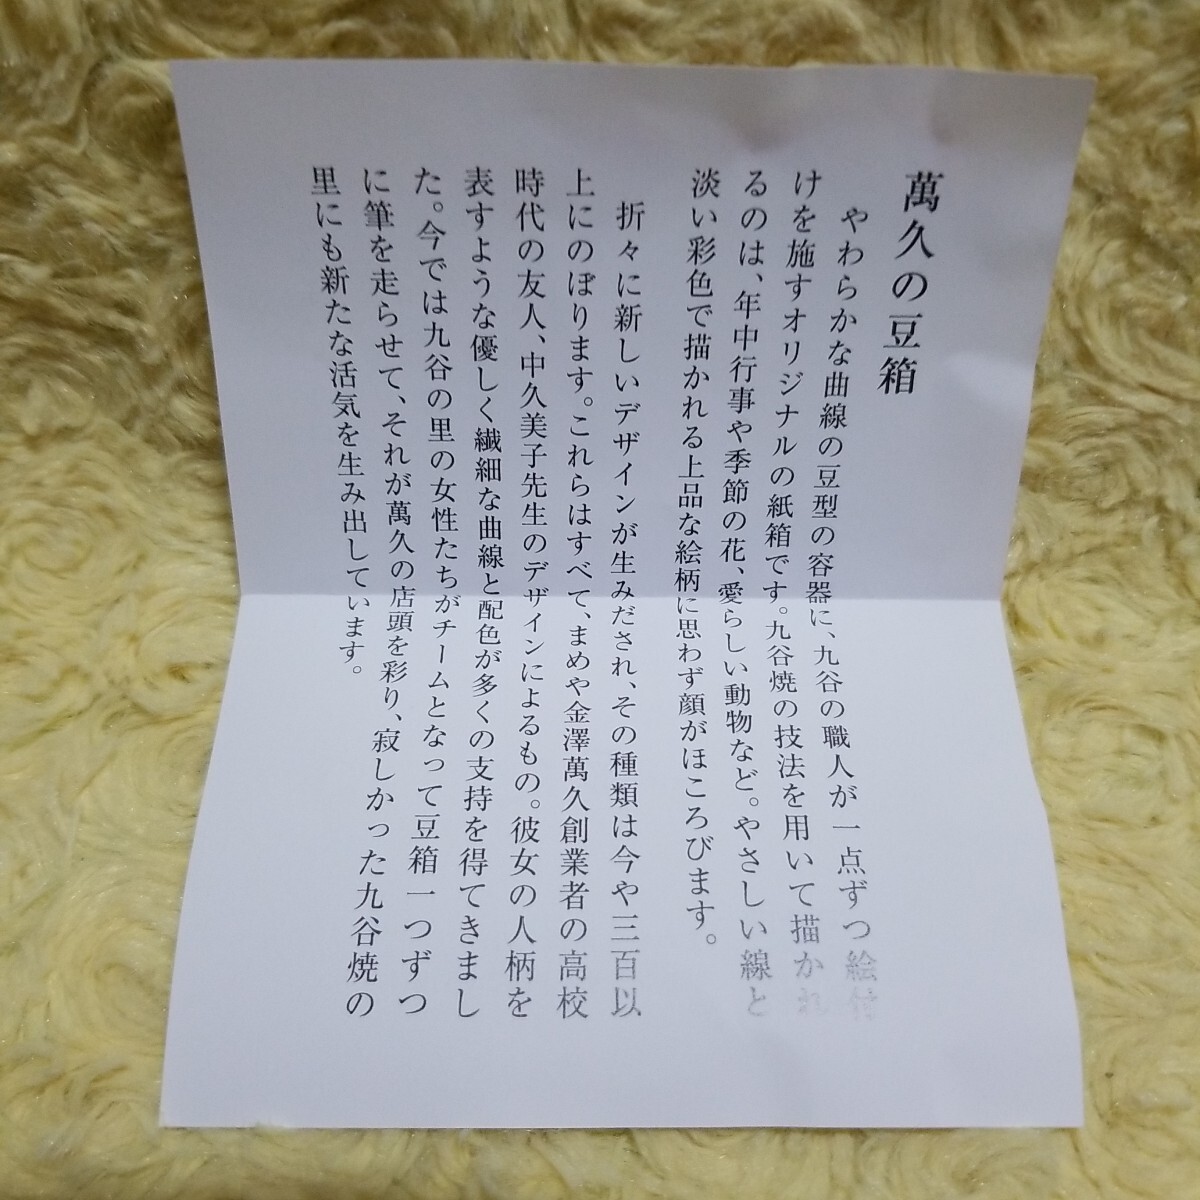 萬久の豆箱
やわらかな曲線の豆型の容器に、九谷の職人が一点ずつ絵付
けを施すオリジナルの紙箱です。九谷焼の技法を用いて描かれ
るのは、年中行事や季節の花、愛らしい動物など。やさしい線と
淡い彩色で描かれる上品な絵柄に思わず顔がほころびます。
折々に新しいデザインが生みだされ、その種類は今や三百以
上にのぼります。これらはすべて、まめや金澤萬久創業者の高校
時代の友人、中久美子先生のデザインによるもの。彼女の人柄を
表すような優しく繊細な曲線と配色が多くの支持を得てきまし
た。今では九谷の里の女性たちがチームとなって豆箱一つずつ
に筆を走らせて、それが萬久の店頭を彩り、寂しかった九谷焼の
里にも新たな活気を生み出しています。